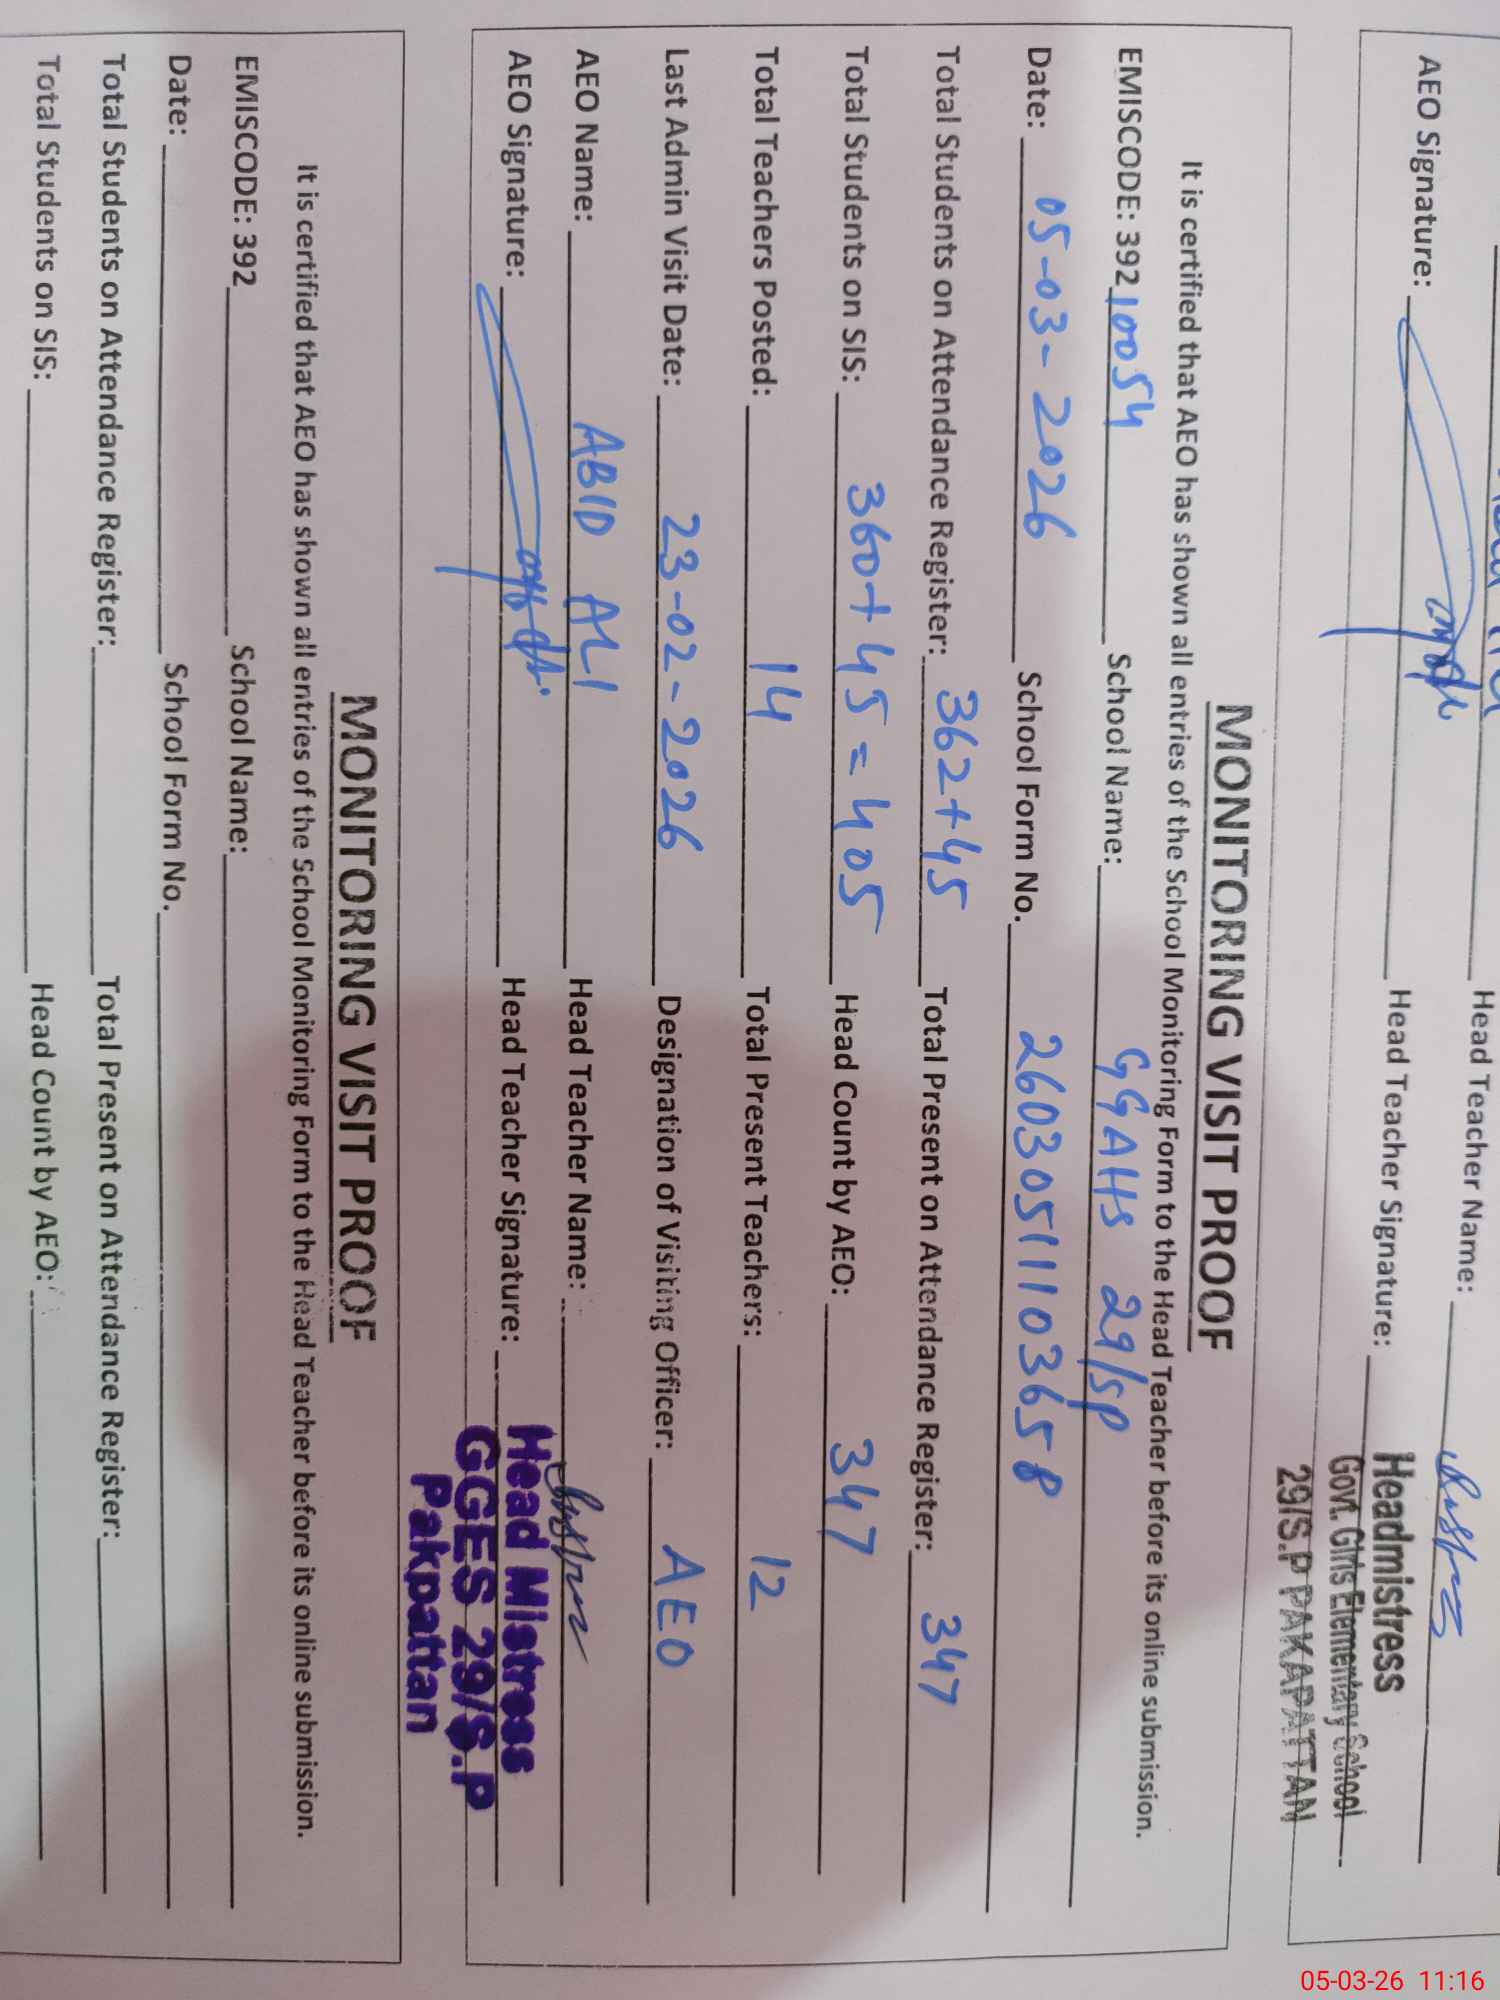 Head Teacher Name:
AEO Signature: Head Teacher Signature:
Headmistress
Govt. Girls Elementary School
29/S.P PAKAPATTAN
MONITORING VISIT PROOF
It is certified that AEO has shown all entries of the School Monitoring Form to the Head Teacher before its online submission.
EMISCODE: 39210054 School Name: GGAHS 29/SP
Date: 05-03-2026 School Form No. 26030511103658
Total Students on Attendance Register: 362+45 Total Present on Attendance Register: 347
Total Students on SIS: 360+45=405 Head Count by AEO: 347
Total Teachers Posted: 14 Total Present Teachers: 12
Last Admin Visit Date: 23-02-2026 Designation of Visiting Officer: AEO
AEO Name: ABID ALI Head Teacher Name:
AEO Signature: Head Teacher Signature:
Head Mistress
GGES 29/S.P
Pakpattan
MONITORING VISIT PROOF
It is certified that AEO has shown all entries of the School Monitoring Form to the Head Teacher before its online submission.
EMISCODE: 392 School Name:
Date: School Form No.
Total Students on Attendance Register: Total Present on Attendance Register:
Total Students on SIS: Head Count by AEO:
05-03-26 11:16